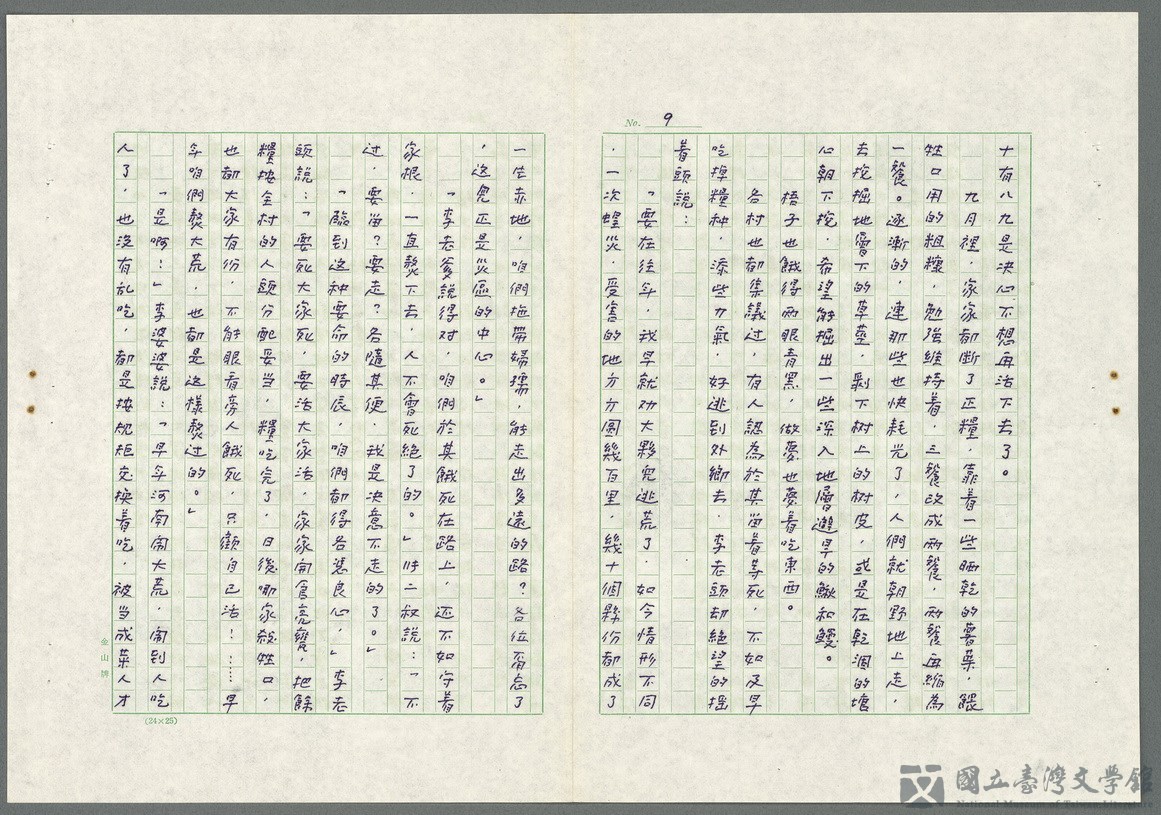 No. 9
十有八九是决心不想再活下去了。
九月裡，家家都断了正糧，靠着一些晒乾的薯葉，餵
牲口用的粗糠，勉強維持着，三餐改成兩餐，兩餐再縮為
一餐。逐漸的，連那些也快耗光了，人們就朝野地上走，
去挖掘地層下的草莖，剝下树上的树皮，或是在乾涸的塘
心朝下挖，希望能掘出一些深入地層避旱的鰍和鱔。
梧子也餓得兩眼青黑，做夢也夢着吃東西。
各村也都集議过，有人認為於其留着等死，不如及早
吃掉糧种，添些力氣，好逃到外鄉去，李老頭却絕望的搖
着頭說：
「要在往年，我早就劝大夥兒逃荒了，如今情形不同
，一次蝗災，受害的地方方圓幾百里，幾十個縣份都成了
一片赤地，咱們拖帶婦孺，能走出多遠的路？各位不要忘了
，这兒正是災區的中心。」
「李老爹說得对，咱們於其餓死在路上，还不如守着
家根，一直熬下去，人不會死絕了的。」時二叔說：「不
过，要留？要走？各隨其便，我是决意不走的了。」
「臨到这种要命的時辰，咱們都得各憑良心，」李老
頭說：「要死大家死，要活大家活，家家開倉亮甕，把餘
糧按全村的人頭分配妥当，糧吃完了，日後哪家殺牲口，
也都大家有份，不能眼看旁人餓死，只顧自己活！……早
年咱們熬大荒，也都是这樣熬过的。」
「是啊！」李婆婆說：「早年河南鬧大荒，鬧到人吃
人了，也沒有乱吃，都是按規矩交換着吃，被当成菜人才
金山牌
(24×25)
國立臺灣文學館
National Museum of Taiwan Literature